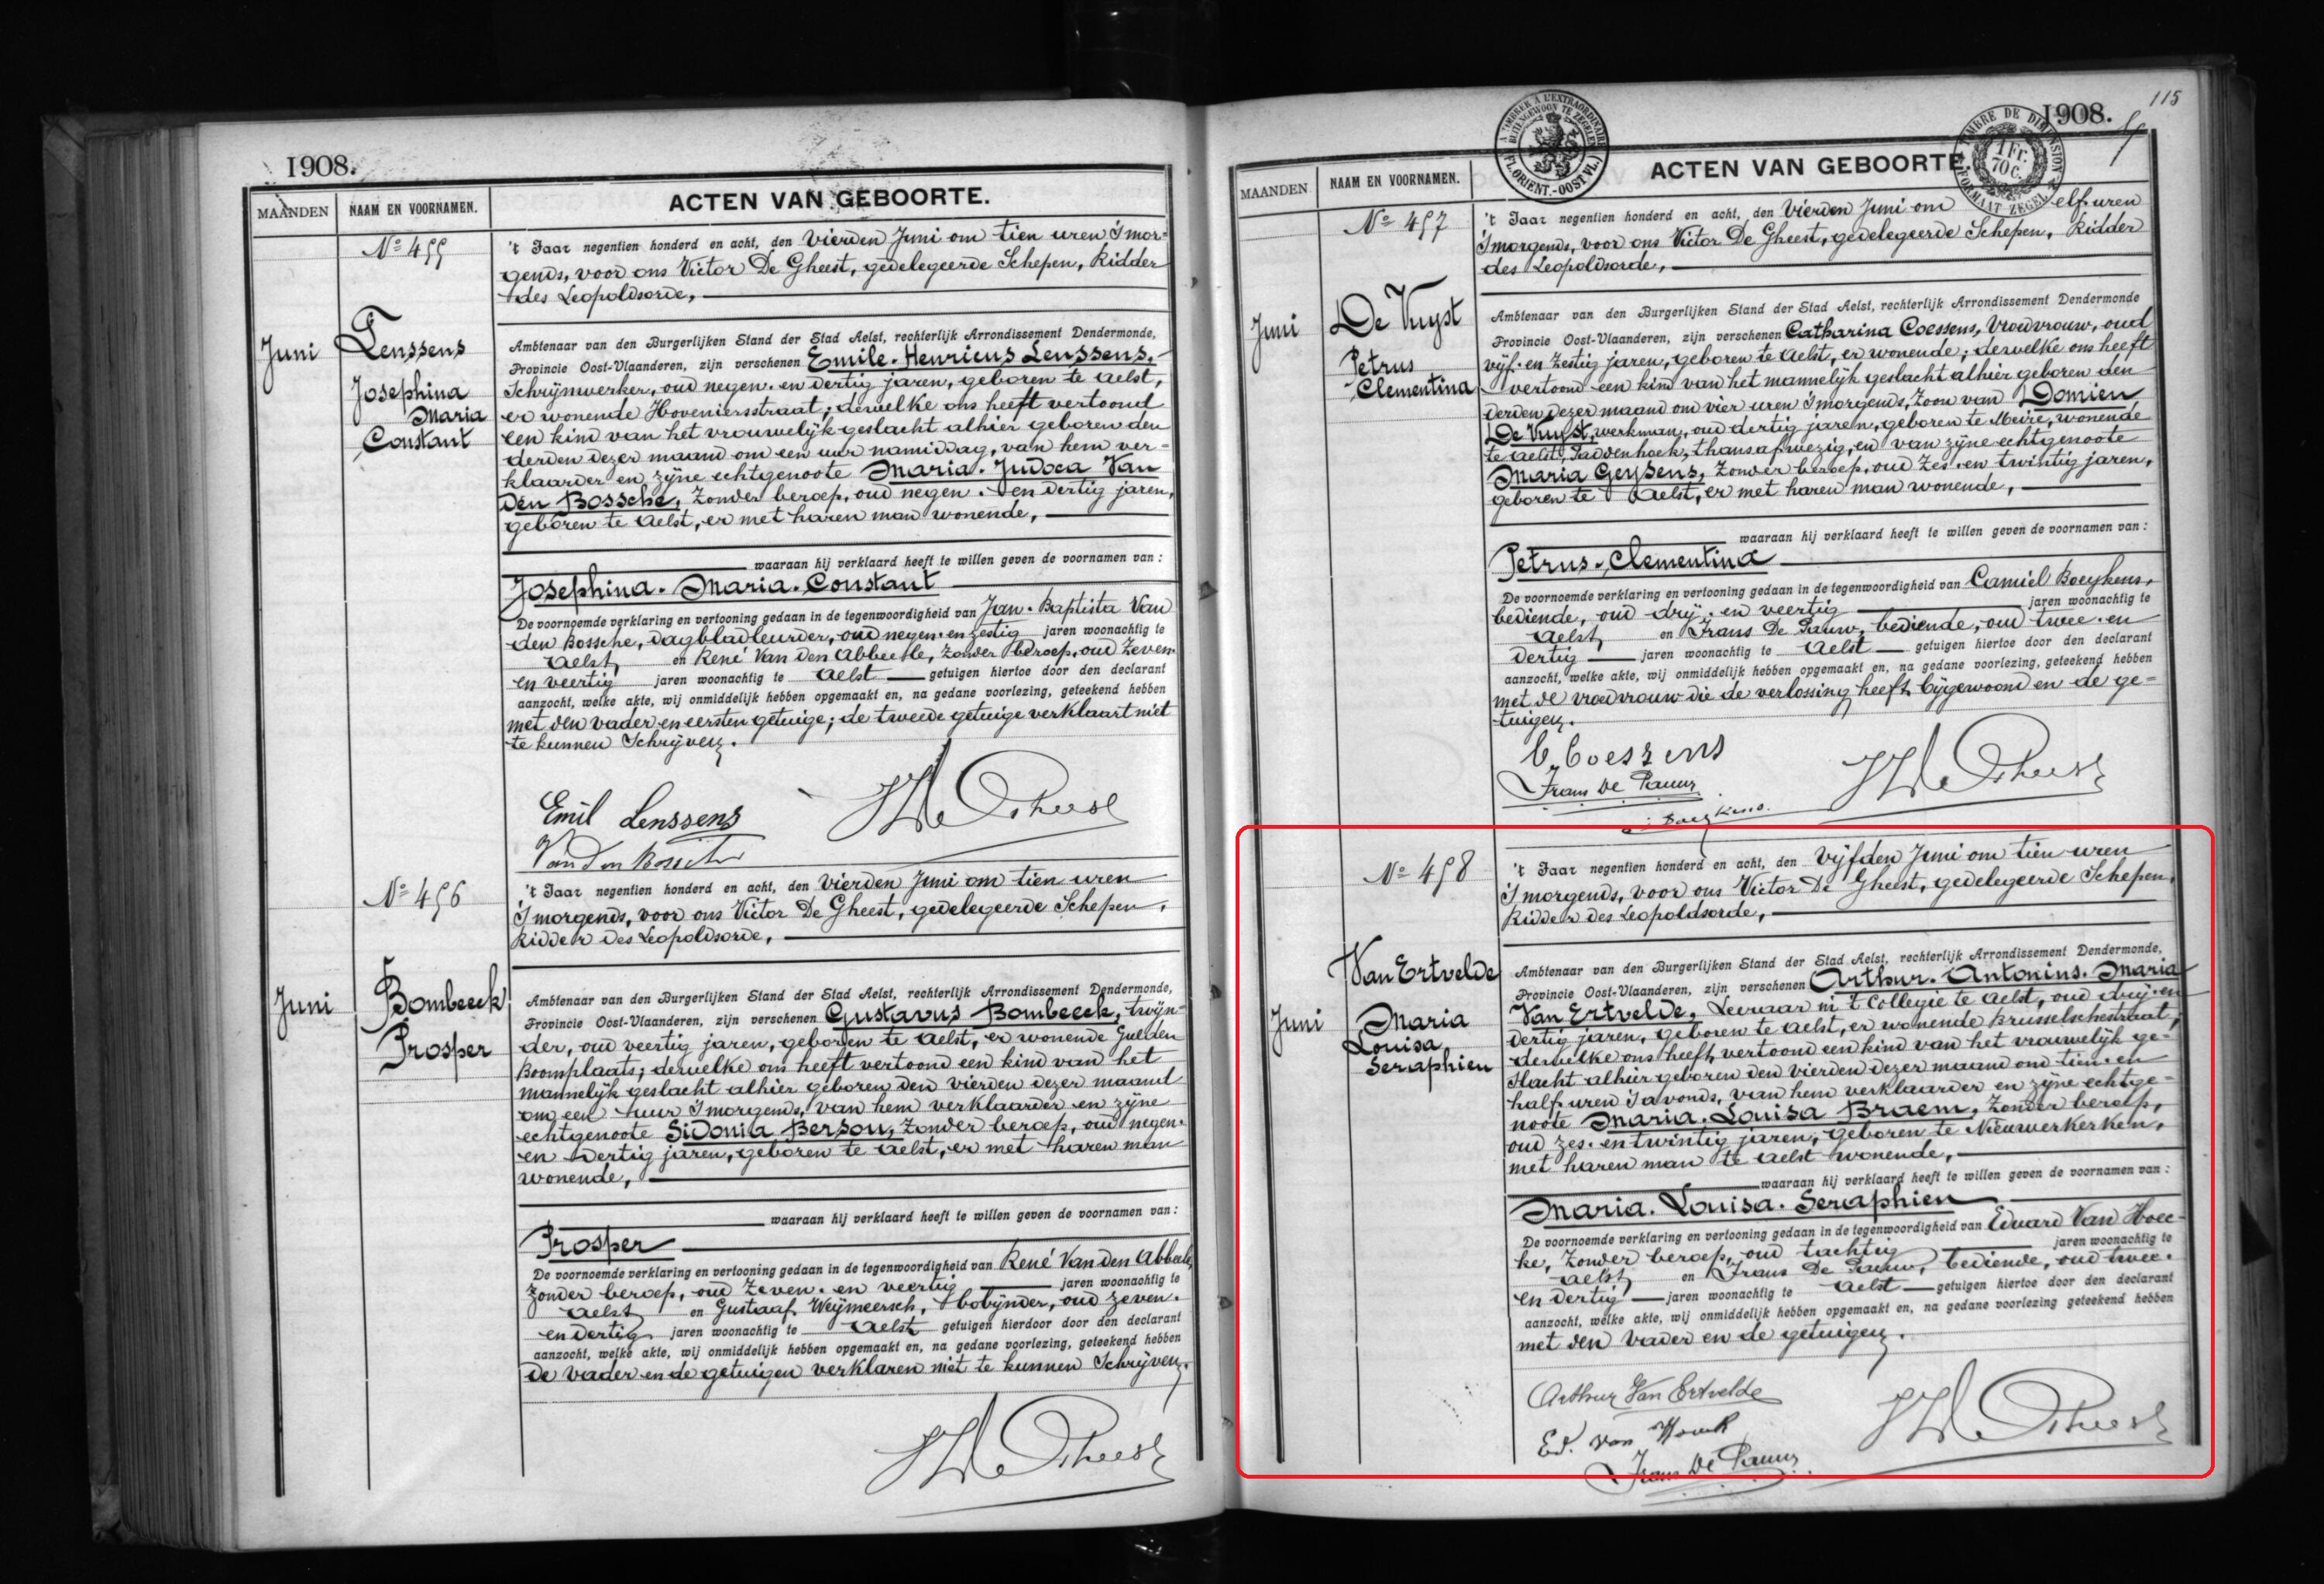 1908.
MAANDEN
NAAM EN VOORNAMEN.
ACTEN VAN GEBOORTE.
Nº 455
Juni
Lenssens
Josephina
Maria
Constant
't Jaar negentien honderd en acht, den vierden Juni om tien uren 's mor-
gends, voor ons Victor De Gheest, gedelegeerde Schepen, Ridder
des Leopoldsorde,
Ambtenaar van den Burgerlijken Stand der Stad Aelst, rechterlijk Arrondissement Dendermonde,
Provincie Oost-Vlaanderen, zijn verschenen Emile-Henricus Lenssens,
Schrijnwerker, oud negen-en dertig jaren, geboren te Aelst,
er wonende Hoveniersstraat; dewelke ons heeft vertoond
een kind van het vrouwelijk geslacht alhier geboren den
derden dezer maand om een uur namiddag, van hem ver-
klaarder en zijne echtgenoote Maria-Judoca Van
den Bossche, zonder beroep, oud negen-en dertig jaren,
geboren te Aelst, er met haren man wonende,
waaraan hij verklaard heeft te willen geven de voornamen van :
Josephina-Maria-Constant
De voornoemde verklaring en vertooning gedaan in de tegenwoordigheid van Jan-Baptista Van
den Bossche, dagbladleurder, oud negen-en zestig jaren woonachtig te
Aelst en René Van Den Abbeele, zonder beroep, oud zeven-
en veertig jaren woonachtig te Aelst getuigen hiertoe door den declarant
aanzocht, welke akte, wij onmiddelijk hebben opgemaakt en, na gedane voorlezing, geteekend hebben
met den vader en eersten getuige; de tweede getuige verklaart niet
te kunnen Schrijven.
Emil Lenssens
Van Den Bossche
V De Gheest
Nº 456
Juni
Bombeeck
Prosper
't Jaar negentien honderd en acht, den vierden Juni om tien uren
's morgends, voor ons Victor De Gheest, gedelegeerde Schepen,
Ridder des Leopoldsorde,
Ambtenaar van den Burgerlijken Stand der Stad Aelst, rechterlijk Arrondissement Dendermonde,
Provincie Oost-Vlaanderen, zijn verschenen Gustavus Bombeeck, twijn-
der, oud veertig jaren, geboren te Aelst, er wonende Gulden
Boomplaats; dewelke ons heeft vertoond een kind van het
mannelijk geslacht alhier geboren den vierden dezer maand
om een uur 's morgends, van hem verklaarder en zijne
echtgenoote Sidonia Bersou, zonder beroep, oud negen-
en dertig jaren, geboren te Aelst, er met haren man
wonende,
waaraan hij verklaard heeft te willen geven de voornamen van:
Prosper
De voornoemde verklaring en vertooning gedaan in de tegenwoordigheid van René Van den Abbeele,
zonder beroep, oud zeven-en veertig jaren woonachtig te
Aelst en Gustaaf Weijmeersch, bobijnder, oud zeven-
en dertig jaren woonachtig te Aelst getuigen hierdoor door den declarant
aanzocht, welke akte, wij onmiddelijk hebben opgemaakt en, na gedane voorlezing, geteekend hebben
De vader en de getuigen verklaren niet te kunnen Schrijven.
V De Gheest
115
1908.
MAANDEN
NAAM EN VOORNAMEN.
ACTEN VAN GEBOORTE.
TIMBRE DE DIMENSION
1 Fr.
70 c.
FORMAAT ZEGEL
TIMBRER A L'EXTRAORDINAIRE
BUITENGEWOON TE ZEGELEN
(FL. ORIENT.-OOST VL.)
Nº 457
Juni
De Vuyst
Petrus
Clementina
't Jaar negentien honderd en acht, den vierden Juni om elf uren
's morgends, voor ons Victor De Gheest, gedelegeerde Schepen, Ridder
des Leopoldsorde,
Ambtenaar van den Burgerlijken Stand der Stad Aelst, rechterlijk Arrondissement Dendermonde
Provincie Oost-Vlaanderen, zijn verschenen Catharina Coessens, Vroedvrouw, oud
vijf-en zestig jaren, geboren te Aelst, er wonende; dewelke ons heeft
vertoond een kind van het mannelijk geslacht alhier geboren den
derden dezer maand om vier uren 's morgends, zoon van Domien
De Vuyst, werkman, oud dertig jaren, geboren te Meire, wonende
te Aelst, Paddenhoek, thans afwezig, en van zijne echtgenoote
Maria Geysens, zonder beroep, oud zes-en twintig jaren,
geboren te Aelst, er met haren man wonende,
waaraan hij verklaard heeft te willen geven de voornamen van :
Petrus-Clementina
De voornoemde verklaring en vertooning gedaan in de tegenwoordigheid van Camiel Boeykens,
bediende, oud drij-en veertig jaren woonachtig te
Aelst en Frans De Pauw, bediende, oud twee-en
dertig jaren woonachtig te Aelst getuigen hiertoe door den declarant
aanzocht, welke akte, wij onmiddelijk hebben opgemaakt en, na gedane voorlezing, geteekend hebben
met de vroedvrouw die de verlossing heeft bijgewoond en de ge-
tuigen.
C. Coessens
Frans De Pauw
C. Boeykens.
V De Gheest
Nº 458
Juni
Van Ertvelde
Maria
Louisa
Seraphien
't Jaar negentien honderd en acht, den vijfden Juni om tien uren
's morgends, voor ons Victor De Gheest, gedelegeerde Schepen,
Ridder des Leopoldsorde,
Ambtenaar van den Burgerlijken Stand der Stad Aelst, rechterlijk Arrondissement Dendermonde,
Provincie Oost-Vlaanderen, zijn verschenen Arthur-Antonius-Maria
Van Ertvelde, Leeraar in 't Collegie te Aelst, oud drij-en
dertig jaren, geboren te Aelst, er wonende Brusselschestraat;
dewelke ons heeft vertoond een kind van het vrouwelijk ge-
slacht alhier geboren den vierden dezer maand om tien-en
half uren 's avonds, van hem verklaarder en zijne echtge-
noote Maria-Louisa Braem, zonder beroep,
oud zes-en twintig jaren, geboren te Nieuwerkerken,
met haren man te Aelst wonende,
waaraan hij verklaard heeft te willen geven de voornamen van :
Maria-Louisa-Seraphien
De voornoemde verklaring en vertooning gedaan in de tegenwoordigheid van Eduard Van Hoec-
ke, zonder beroep, oud tachtig jaren woonachtig te
Aelst en Frans De Pauw, bediende, oud twee-
en dertig jaren woonachtig te Aelst getuigen hiertoe door den declarant
aanzocht, welke akte, wij onmiddelijk hebben opgemaakt en, na gedane voorlezing geteekend hebben
met den vader en de getuigen.
Arthur Van Ertvelde
Ed. van Hoeck
Frans De Pauw
V De Gheest